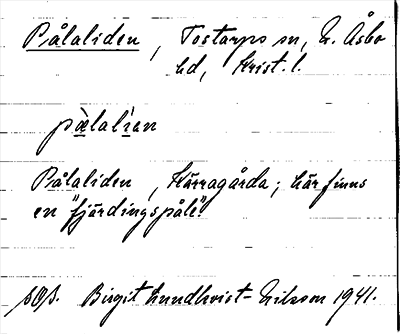 Pålaliden, Tostarps sn, N. Åsbo
hd, Krist. l.
pålalian
Pålaliden, Härragårda; här finns
en "fjärdingspåle"
Birgit Lundkvist-Nilsson 1941.